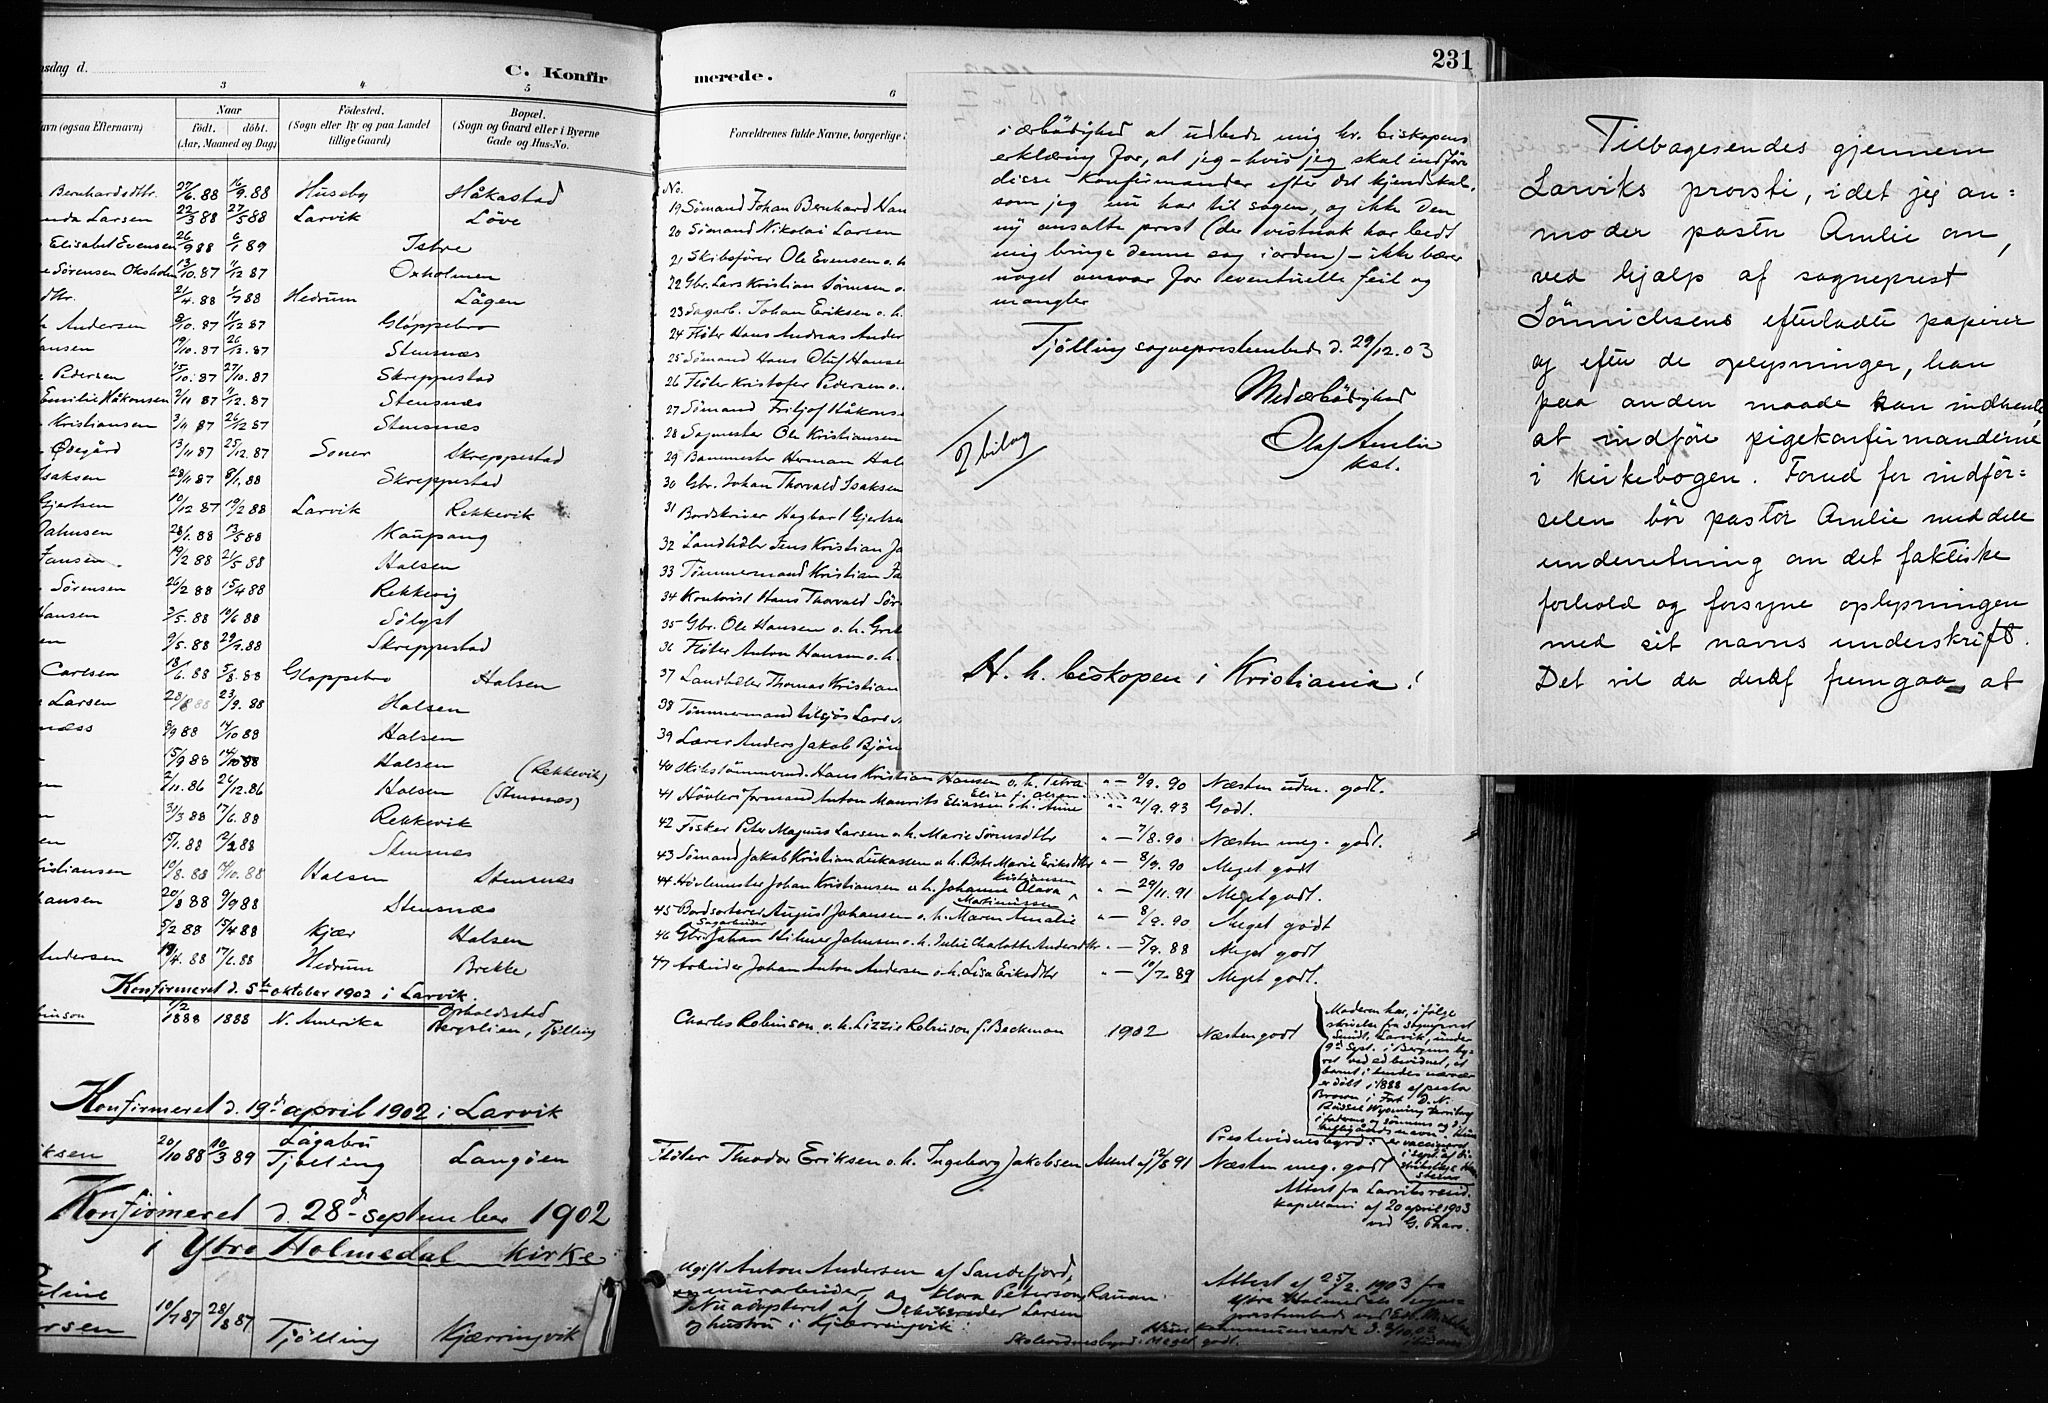 sdag d.
C. Konfir
3
4
5
Navn (ogsaa Efternavn)
Naar
født. døbt.
(Aar, Maaned og Dag)
Fødested.
(Sogn eller By og paa Landet
tillige Gaard)
Bopæl.
(Sogn og Gaard eller i Byerne
Gade og Hus-No.
Bernhardsdtr. 27/6.88 16/9.88 Huseby Håkastad
Larsen 22/3 88 27/5 88 Larvik Löve
Elisabet Evensen 26/9 88 6/1 89 Istre
Sörensen Oksholm 13/10.87 11/12 87 Oxholmen
dtr. 21/4.88 1/7 88 Hedrum Lågen
Andersen 8/10.87 11/12 87 Gloppebro
ansen 19/10.87 26/12.87 Stensnæs
Pedersen 15/10.87 27/10.87 Skreppestad
Emilie Håkonsen 2/11 87 11/12.87 Stensnæs
Kristiansen 3/11 87 26/12 87 Stensnæs
Ödegård 13/11 87 25/12.87 Soner Skreppestad
Isaksen 29/11 87 8/1.88 Skreppestad
Gjertsen 10/12 87 19/2 88 Larvik Rekkevik
Jahnsen 28/1.88 13/5 88 Kaupang
Jansen 19/2 88 21/5.88 Halsen
Sörensen 26/2 88 15/4 88 Rekkevig
Hansen 3/5.88 10/6 88 Sölyst
en 9/5.88 29/7.88 Skreppestad
Carlsen 18/6.88 5/8.88 Gloppebro Halsen
Larsen 28/8 88 23/9.88 Halsen
næss 8/9 88 14/10 88 Halsen
15/9 88 14/10 88 Halsen (Rekkevik)
en 2/11.86 26/12.86 Halsen (Stensnæs)
31/3 88 17/6.88 Rekkevik
en 15/1.88 12/2 88 Stensnæs
Kristiansen 19/8.88 14/10.88 Halsen Stensnæs
hansen 20/8 88 9/9 88 Stensnæs
5/2 88 15/4 88 Kjær Halsen
Andersen 19/4.88 17/6.88 Hedrum Brekke
Konfirmeret d. 5te oktober 1902 i Larvik.
binson 1/2 1888 1888 N. Amerika Opholdssted
Bergslien, Tjölling
Konfirmeret d. 19d april 1902 i Larvik
iksen 20/10 88 10/3 89 Lågabru
Tjölling Langöen
Konfirmeret d. 28d september 1902
i Ytre Holmedal kirke
line
rsen 10/7 87 28/8 87 Tjölling Kjærringvik
merede.
231
6
Forældrenes fulde Navne, borgerlige
No.
19 Sömand Johan Bernhard Han
20 Sömand Nikolai Larsen
21 Skibsförer Ole Evensen o.h
22 Gbr. Lars Kristian Sörensen o.
23 Sagarb. Johan Eriksen o.h.
24 Flöter Hans Andreas Ander
25 Sömand Hans Oluf Hanse
26 Flöter Kristofer Pedersen o.
27 Sömand Fritjof Håkons
28 Sagmester Ole Kristiansen
29 Bommester Herman Hal
30 Gbr. Johan Thorvald Isaksen
31 Bordskriver Hagbart Gjertsen
32 Landhdlr Jens Kristian Ja
33 Tömmermand Kristian Ja
34 Kontorist Hans Thorvald Sör
35 Gbr. Ole Hansen o.h. Gret
36 Flöter Anton Hansen o.h.
37 Landhdlr Thomas Kristian
38 Tömmermand tilsjös Lars
39 Lærer Anders Jakob Bjön
40 Skibstömmermd. Hans Kristian Hansen o.h. Petra " — 9/9. 90 Næsten udm. godt.
41 Hövleriformand Anton Maurits Eliassen o.h. Anne Elise f. Olsen " — 21/9. 93 Godt.
42 Fisker Peter Magnus Larsen o.h. Marie Sörensdtr " — 7/8.90 Næsten meg. godt.
43 Sömand Jakob Kristian Lukassen o.h. Berte Marie Eriksdtr " — 8/9.90 Meget godt
44 Hövlemester Johan Kristiansen o.h. Johanne Olava Kristiansen " — 29/11.91 Meget godt.
45 Bordsorterer August Johansen o.h. Maren Amalie Martinussen " — 8/9.90 Meget godt
Sagarbeider
46 Gbr. Johan Hilmer Jahnsen o.h. Julie Charlotte Andersdtr " — 5/9.88 Meget godt
47 Arbeider Johan Anton Andersen o.h. Lisa Eriksdtr " — 10/7.89 Meget godt.
Charles Robinson o.h. Lizzie Robinson f. Beckman 1902 Næsten godt
Moderen har, i fölge
skrivelse fra sogneprest
Smidt, Larvik, under
9de Sept. i Bergens by-
ret ved ed bevidnet, at
barnet i hendes nærvær
er döbt i 1888 af pastor
Brown i Fort D. N.
Russel Wyoming territory
Prestevidnesbyrd:
Flöter Theodor Eriksen o.h. Ingeborg Jakobsen Attest af 12/8 91 Næsten meg. godt
Attest fra Larviks resid.
kapellani af 20 april 1903
ved G. Thars.
Ugift Anton Andersen af Sandefjord,
murarbeider, og Klara Peterson, Rauan.
Nu adopteret af skibsreder Larsen
og hustru i Kjærringvik.
Attest af 25/2. 1903 fra
Ytre Holmedals sogne-
prestembed ved
Hun kommunicerede d. 3/10.02
Skolevidnesbyrd: Meget godt.
i ærbödighed at udbede mig hr. biskopens
erklæring for, at jeg – hvis jeg skal indföre
disse konfirmander efter det kjendskab,
som jeg nu har til sagen, og ikke den
ny ansatte prest (der vistnok har bedt
mig bringe denne sag i orden) – ikke bærer
noget ansvar for eventuelle feil og
mangler
Tjölling sogneprestembed d. 29/12.03
Med ærbödighed
Olaf Amlie
kst.
7 bilag
H. h. biskopen i Kristiania!
Tilbagesendes gjennem
Larviks provsti, idet jeg an=
moder pastor Amlie om,
ved hjælp af sogneprest
Sönnichsens efterladte papirer
og efter de oplysninger, han
paa anden maade kan indhente,
at indföre pigekonfirmanderne
i kirkebogen. Forud for indför=
selen bör pastor Amlie meddele
underretning om det faktiske
forhold og forsyne oplysningen
med sit navns underskrift.
Det vil da deraf fremgaa at